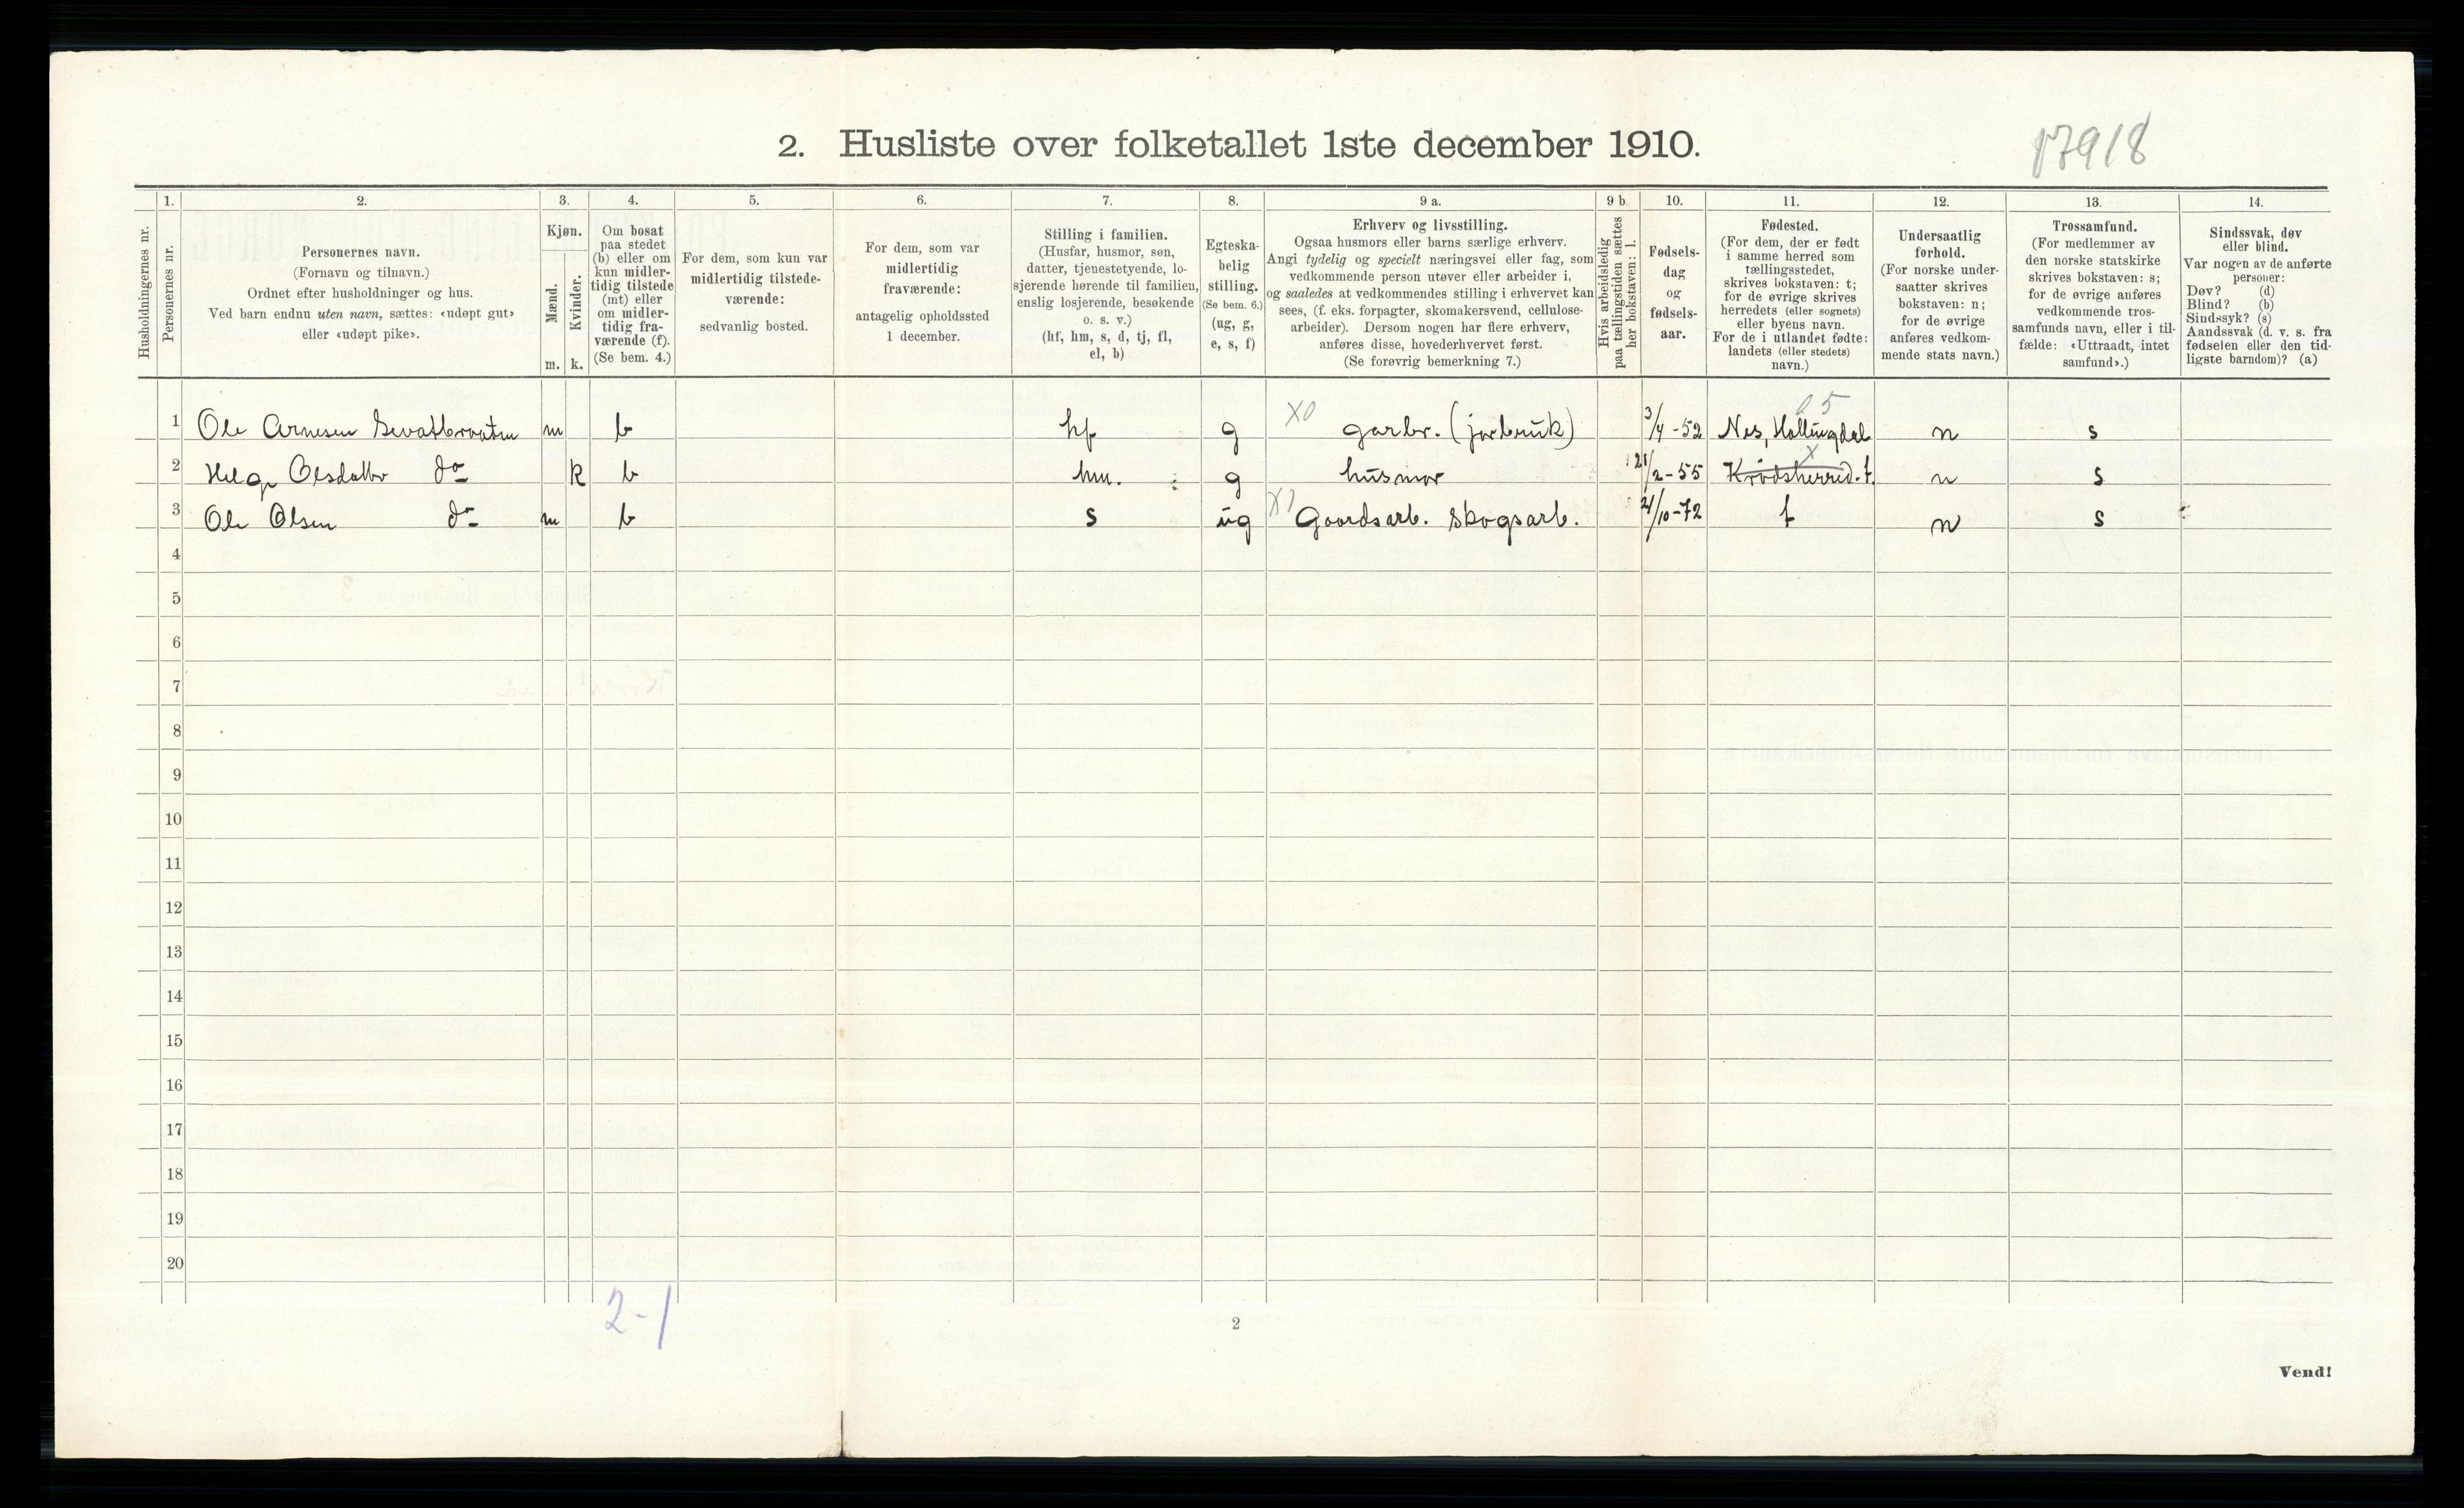 2. Husliste over folketallet 1ste december 1910.
17918
Husholdningernes nr.
1.
Personernes nr.
2.
Personernes navn.
(Fornavn og tilnavn.)
Ordnet efter husholdninger og hus.
Ved barn endnu uten navn, sættes: «udøpt gut»
eller «udøpt pike».
3.
Kjøn.
Mænd.
Kvinder.
m. k.
4.
Om bosat
paa stedet
(b) eller om
kun midler-
tidig tilstede
(mt) eller
om midler-
tidig fra-
værende (f).
(Se bem. 4.)
5.
For dem, som kun var
midlertidig tilstede-
værende:
sedvanlig bosted.
6.
For dem, som var
midlertidig
fraværende:
antagelig opholdssted
1 december.
7.
Stilling i familien.
(Husfar, husmor, søn,
datter, tjenestetyende, lo-
sjerende hørende til familien,
enslig losjerende, besøkende
o. s. v.)
(hf, hm, s, d, tj, fl,
el, b)
8.
Egteska-
belig
stilling.
(Se bem. 6.)
(ug, g,
e, s, f)
9 a.
Erhverv og livsstilling.
Ogsaa husmors eller barns særlige erhverv.
Angi tydelig og specielt næringsvei eller fag, som
vedkommende person utøver eller arbeider i,
og saaledes at vedkommendes stilling i erhvervet kan
sees, (f. eks. forpagter, skomakersvend, cellulose-
arbeider). Dersom nogen har flere erhverv,
anføres disse, hovederhvervet først.
(Se forøvrig bemerkning 7.)
9 b.
Hvis arbeidsledig
paa tællingstiden sættes
her bokstaven: l.
10.
Fødsels-
dag
og
fødsels-
aar.
11.
Fødested.
(For dem, der er født
i samme herred som
tællingsstedet,
skrives bokstaven: t;
for de øvrige skrives
herredets (eller sognets)
eller byens navn.
For de i utlandet fødte:
landets (eller stedets)
navn.)
12.
Undersaatlig
forhold.
(For norske under-
saatter skrives
bokstaven: n;
for de øvrige
anføres vedkom-
mende stats navn.)
13.
Trossamfund.
(For medlemmer av
den norske statskirke
skrives bokstaven: s;
for de øvrige anføres
vedkommende tros-
samfunds navn, eller i til-
fælde: «Uttraadt, intet
samfund».)
14.
Sindssvak, døv
eller blind.
Var nogen av de anførte
personer:
Døv? (d)
Blind? (b)
Sindssyk? (s)
Aandssvak (d. v. s. fra
fødselen eller den tid-
ligste barndom)? (a)
05
1 Ole Arnesen m b hf g X0 garbr. (jorbruk) 3/4-52 Nes, Hallingdal n s
2 Helga Olsdatter do k b hm. g husmor 21/2-55 Krødsherred. t. n s
3 Ole Olsen do m b s ug Gaardsarb. Skogsarb. 21/10-72 t n s
4
5
6
7
8
9
10
11
12
13
14
15
16
17
18
19
20
2-1
2
Vend!